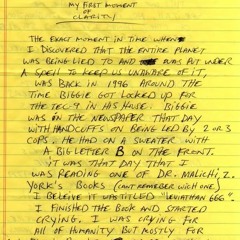 MY FIRST MOMENT
OF
CLARITY
THE EXACT MOMENT IN TIME WHEN
I DISCOVERED THAT THE ENTIRE PLANET
WAS BEING LIED TO AND WAS PUT UNDER
A SPELL TO KEEP US UNAWARE OF IT,
WAS BACK IN 1996 AROUND THE
TIME BIGGIE GOT LOCKED UP FOR
THE TEC-9 IN HIS HOUSE. BIGGIE
WAS IN THE NEWSPAPER THAT DAY
WITH HANDCUFFS ON BEING LED BY 2 OR 3
COPS. HE HAD ON A SWEATER WITH
A BIG LETTER B ON THE FRONT.
IT WAS THAT DAY THAT I
WAS READING ONE OF DR. MALICHI, Z.
YORK'S BOOKS (CANT REMEBER WICH ONE)
I BELEIVE IT WAS TITLED "LEVIATHAN 666"
I FINISHED THE BOOK AND STARTED
CRYING. I WAS CRYING FOR
ALL OF HUMANITY BUT MOSTLY FOR